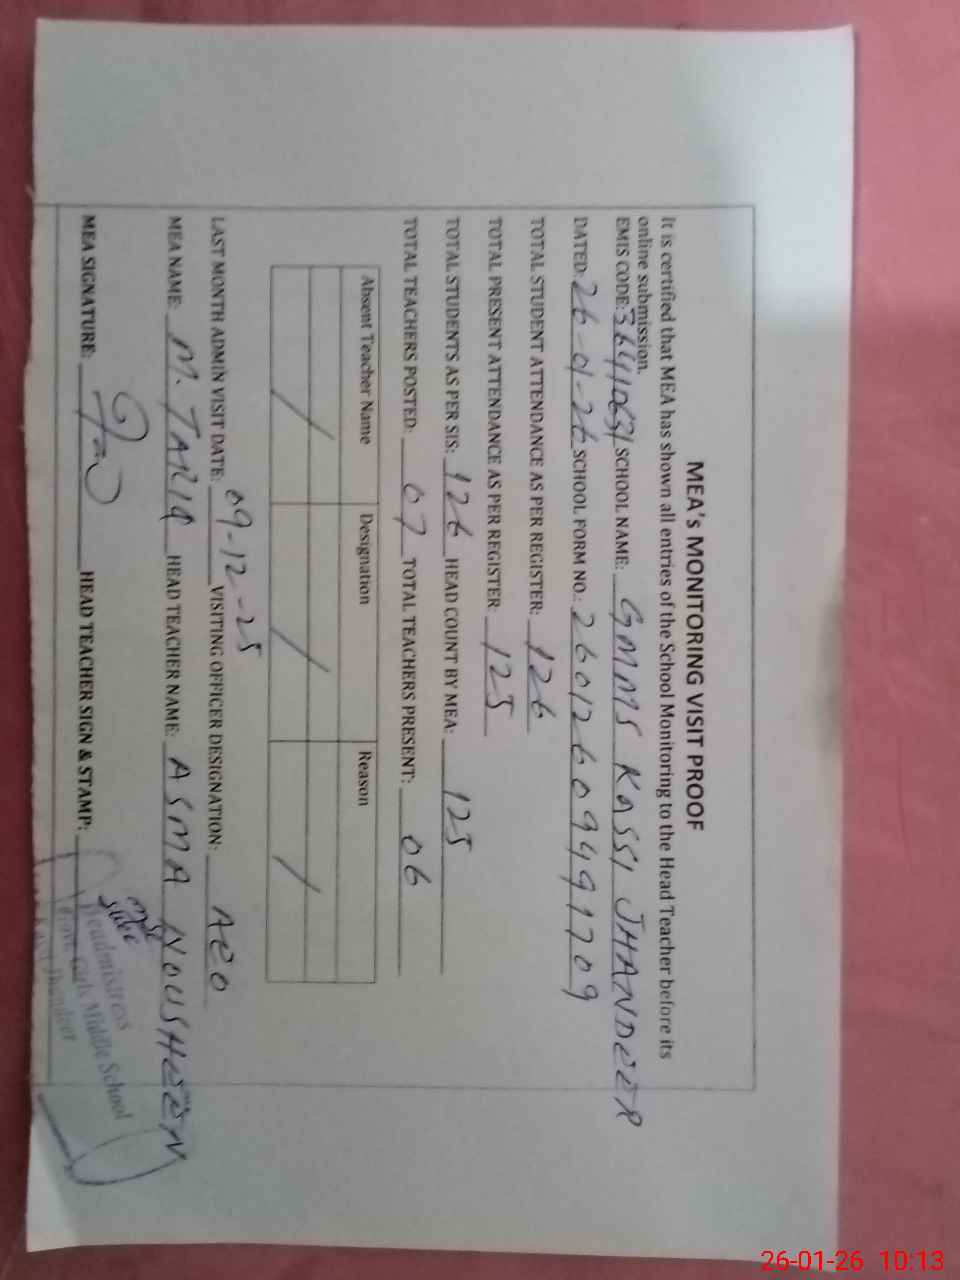 MEA's MONITORING VISIT PROOF
It is certified that MEA has shown all entries of the School Monitoring to the Head Teacher before its
online submission.
EMIS CODE: 36410631 SCHOOL NAME: GMMS KASSI JHANDEER
DATED: 26-01-26 SCHOOL FORM NO.: 26012609491709
TOTAL STUDENT ATTENDANCE AS PER REGISTER: 126
TOTAL PRESENT ATTENDANCE AS PER REGISTER: 125
TOTAL STUDENTS AS PER SIS: 126 HEAD COUNT BY MEA: 125
TOTAL TEACHERS POSTED: 07 TOTAL TEACHERS PRESENT: 06
Absent Teacher Name Designation Reason
/ / /
LAST MONTH ADMIN VISIT DATE: 09-12-25 VISITING OFFICER DESIGNATION: AEO
MEA NAME: M. TARIQ HEAD TEACHER NAME: ASMA NOUSHEEN
MEA SIGNATURE: HEAD TEACHER SIGN & STAMP:
Headmistress
Govt. Girls Middle School
Jhandeer
26-01-26 10:13